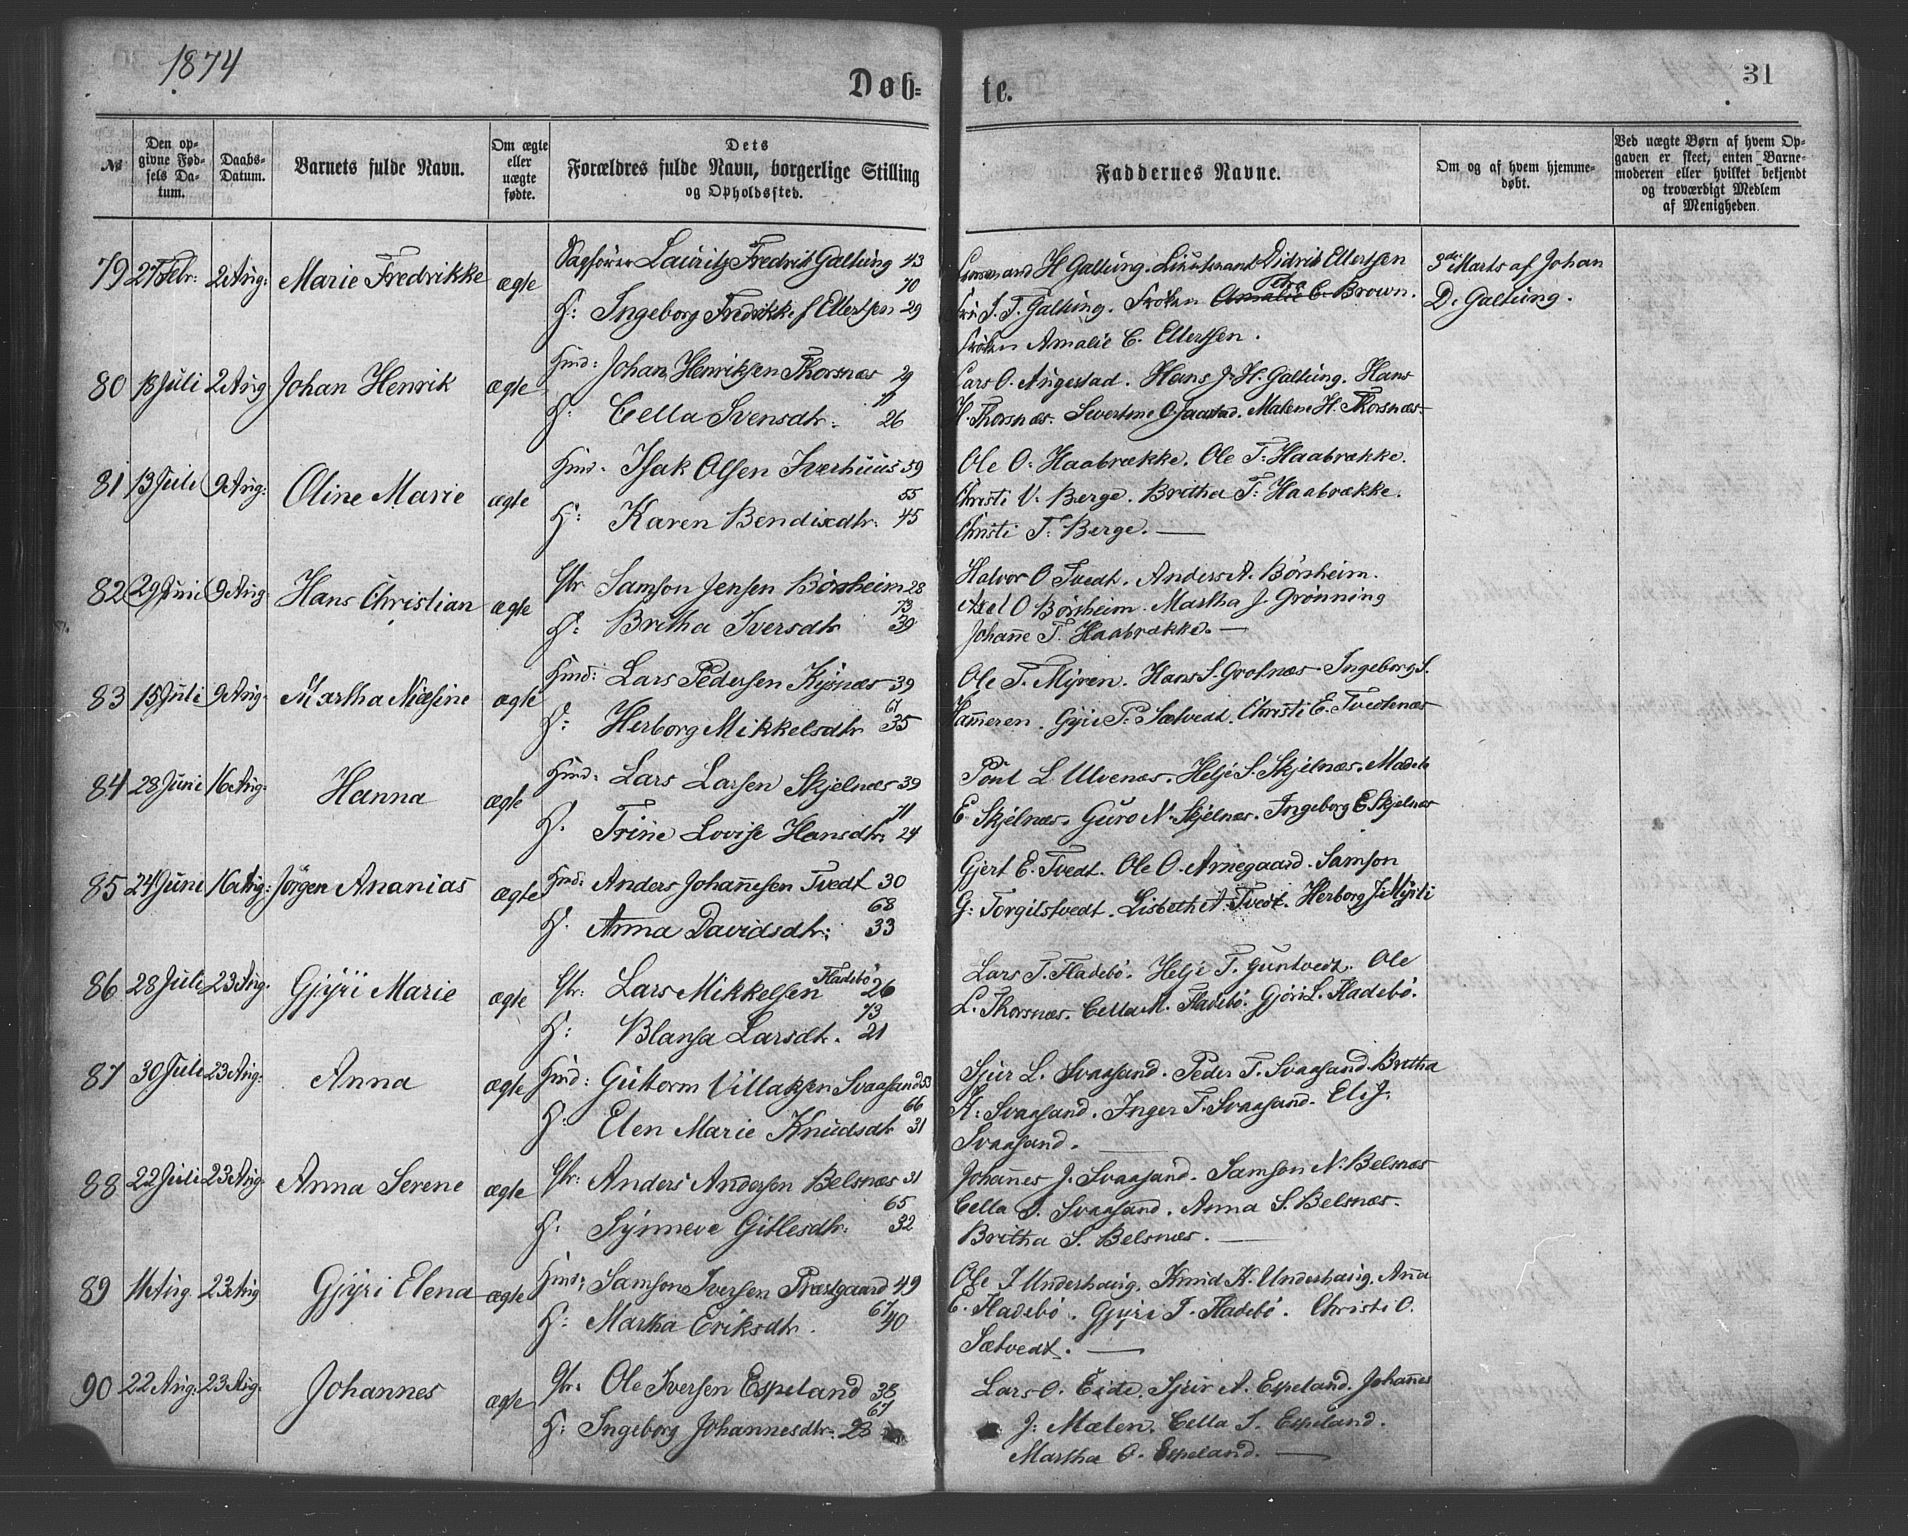 1874
Døb-
te.
31
№
Den op-
givne Fød-
sels Da-
tum.
Daabs-
Datum.
Barnets fulde Navn.
Om ægte
eller
uægte
fødte.
Dets
Forældres fulde Navn, borgerlige Stilling
og Opholdssted.
Faddernes Navne.
Om og af hvem hjemme-
døbt.
Ved uægte Børn af hvem Op-
gaven er skeet, enten Barne-
moderen eller hvilket bekjendt
og troværdigt Medlem
af Menigheden.
79 27 Febr: 2 Aug: Marie Fredrikke ægte
Sagfører Lauritz Fredrik Galtung 43
70
H: Ingeborg Fredrikke f Ellertsen 29
H Galtung. Lieutenant Didrik Ellertsen
Petra
J. T. Galtung. Frøken Amalie C. Brown.
Frøken Amalie C. Ellertsen.
3die Marts af Johan
D. Galtung.
80 18 Juli 2 Aug Johan Henrik ægte
Huusm: Johan Henriksen Thorsnæs 29
H: Cella Svensdtr. 26
Lars O. Augestad. Hans J. H. Galtung. Hans
H. Thorsnæs. Sivertine O Jaastad. Malene H. Thorsnæs
81 13 Juli 9 Aug: Oline Marie ægte
Huusm: Isak Olsen Iverhuus 59
55
H: Karen Bendixdtr. 45
Ole O. Haabrække. Ole T. Haabrække.
Christi V. Berge. Britha T. Haabrække.
Christi T. Berge. —
82 29 Juni 9 Aug Hans Christian ægte
Gbr Samson Jensen Børsheim 28
73
H: Britha Iversdtr 39
Halvor O Tvedt. Anders A. Børsheim.
Axel O Børsheim. Martha J. Grønning
Johanne T. Haabrække. —
83 15 Juli 9 Aug: Martha Nicoline ægte
Huusm: Lars Pedersen Kysnæs 39
67
H: Herborg Mikkelsdtr 35
Ole T. Myren. Hans S. Grotnæs. Ingeborg S.
Hammeren. Gyri P. Sætvedt. Christi E. Tvedtenæs
84 28 Juni 16 Aug. Hanna ægte
Huusm: Lars Larsen Skjelnæs 39
71
H. Trine Lovise Hansdtr. 24
Poul L. Ulvenæs. Helje S. Skjelnæs. Madele
E. Skjelnæs. Guro N. Skjelnæs. Ingeborg E Skjelnæs
85 24 Juni 16 Aug: Jørgen Ananias ægte
Huusm: Anders Johannesen Tvedt 30
68
H. Anna Davidsdtr: 33
Gjert E. Tvedt. Ole O. Arnegaard. Samson
G. Torgilstvedt. Lisbeth A. Tvedt. Herborg J. Myrli
86 28 Juli 23 Aug. Gjyri Marie ægte
Fladebø
Gbr: Lars Mikkelsen 26
73
H: Blansa Larsdtr. 21
Lars T. Fladebø. Helje T. Guntvedt. Ole
L. Thorsnæs. Cella M. Fladebø. Gjøri L. Fladebø.
87 30 Juli 23 Aug: Anna ægte
Huusm: Guttorm Villatzen Svaasand 53
66
H: Elen Marie Knudsdtr 31
Sjur L. Svaasand. Peder T. Svaasand. Britha
K. Svaasand. Inger T. Svaasand. Eli J.
Svaasand. —
88 22 Juli 23 Aug: Anna Serene ægte
Gbr: Anders Andersen Belsnæs 31
65
H: Synneve Gitlesdtr: 32
Johannes J. Svaasand. Samson N. Belsnæs
Cella S. Svaasand. Anna S. Belsnæs.
Britha S. Belsnæs. —
89 11 Aug. 23 Aug Gjyri Elena ægte
Huusm: Samson Iversen Præstgaard 49
67
H: Martha Eriksdtr. 40
Ole I Underhaug. Knud K. Underhaug. Anna
E. Fladebø. Gjyri T. Fladebø. Christi O.
Sætvedt. —
90 22 Aug: 23 Aug. Johannes ægte
Gbr: Ole Iversen Espeland 38
67
H: Ingeborg Johannesdtr. 28
Lars O. Eide. Sjur A. Espeland. Johannes
J. Mælen. Cella I. Espeland.
Martha O. Espeland. —